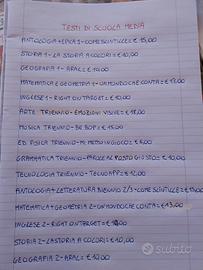 TESTI DI SCUOLA MEDIA
ANTOLOGIA + EPICA 1 - COME SCINTILLE = € 15,00
STORIA 1 - LA STORIA A COLORI = € 10,00
GEOGRAFIA 1 - ARAC = € 10,00
MATEMATICA E GEOMETRIA 1 - UN MONDO CHE CONTA = € 13,00
INGLESE 1 - RIGHT ON TARGET = € 10,00
ARTE TRIENNIO - EMOZIONI VISIVE = € 18,00
MUSICA TRIENNIO - BE BOP = € 15,00
ED. FISICA TRIENNIO - MI METTO IN GIOCO = € 6,00
GRAMMATICA TRIENNIO - PAROLE AL POSTO GIUSTO = € 10,00
TECNOLOGIA TRIENNIO - TECNOAPP = € 12,00
ANTOLOGIA + LETTERATURA BIENNIO 2/3 - COME SCINTILLE = €
MATEMATICA + GEOMETRIA 2 - UN MONDO CHE CONTA = € 13,00
INGLESE 2 - RIGHT ON TARGET = €
STORIA 2 - LA STORIA A COLORI = € 10,00
GEOGRAFIA 2 - ARAC = € 10,00
subito